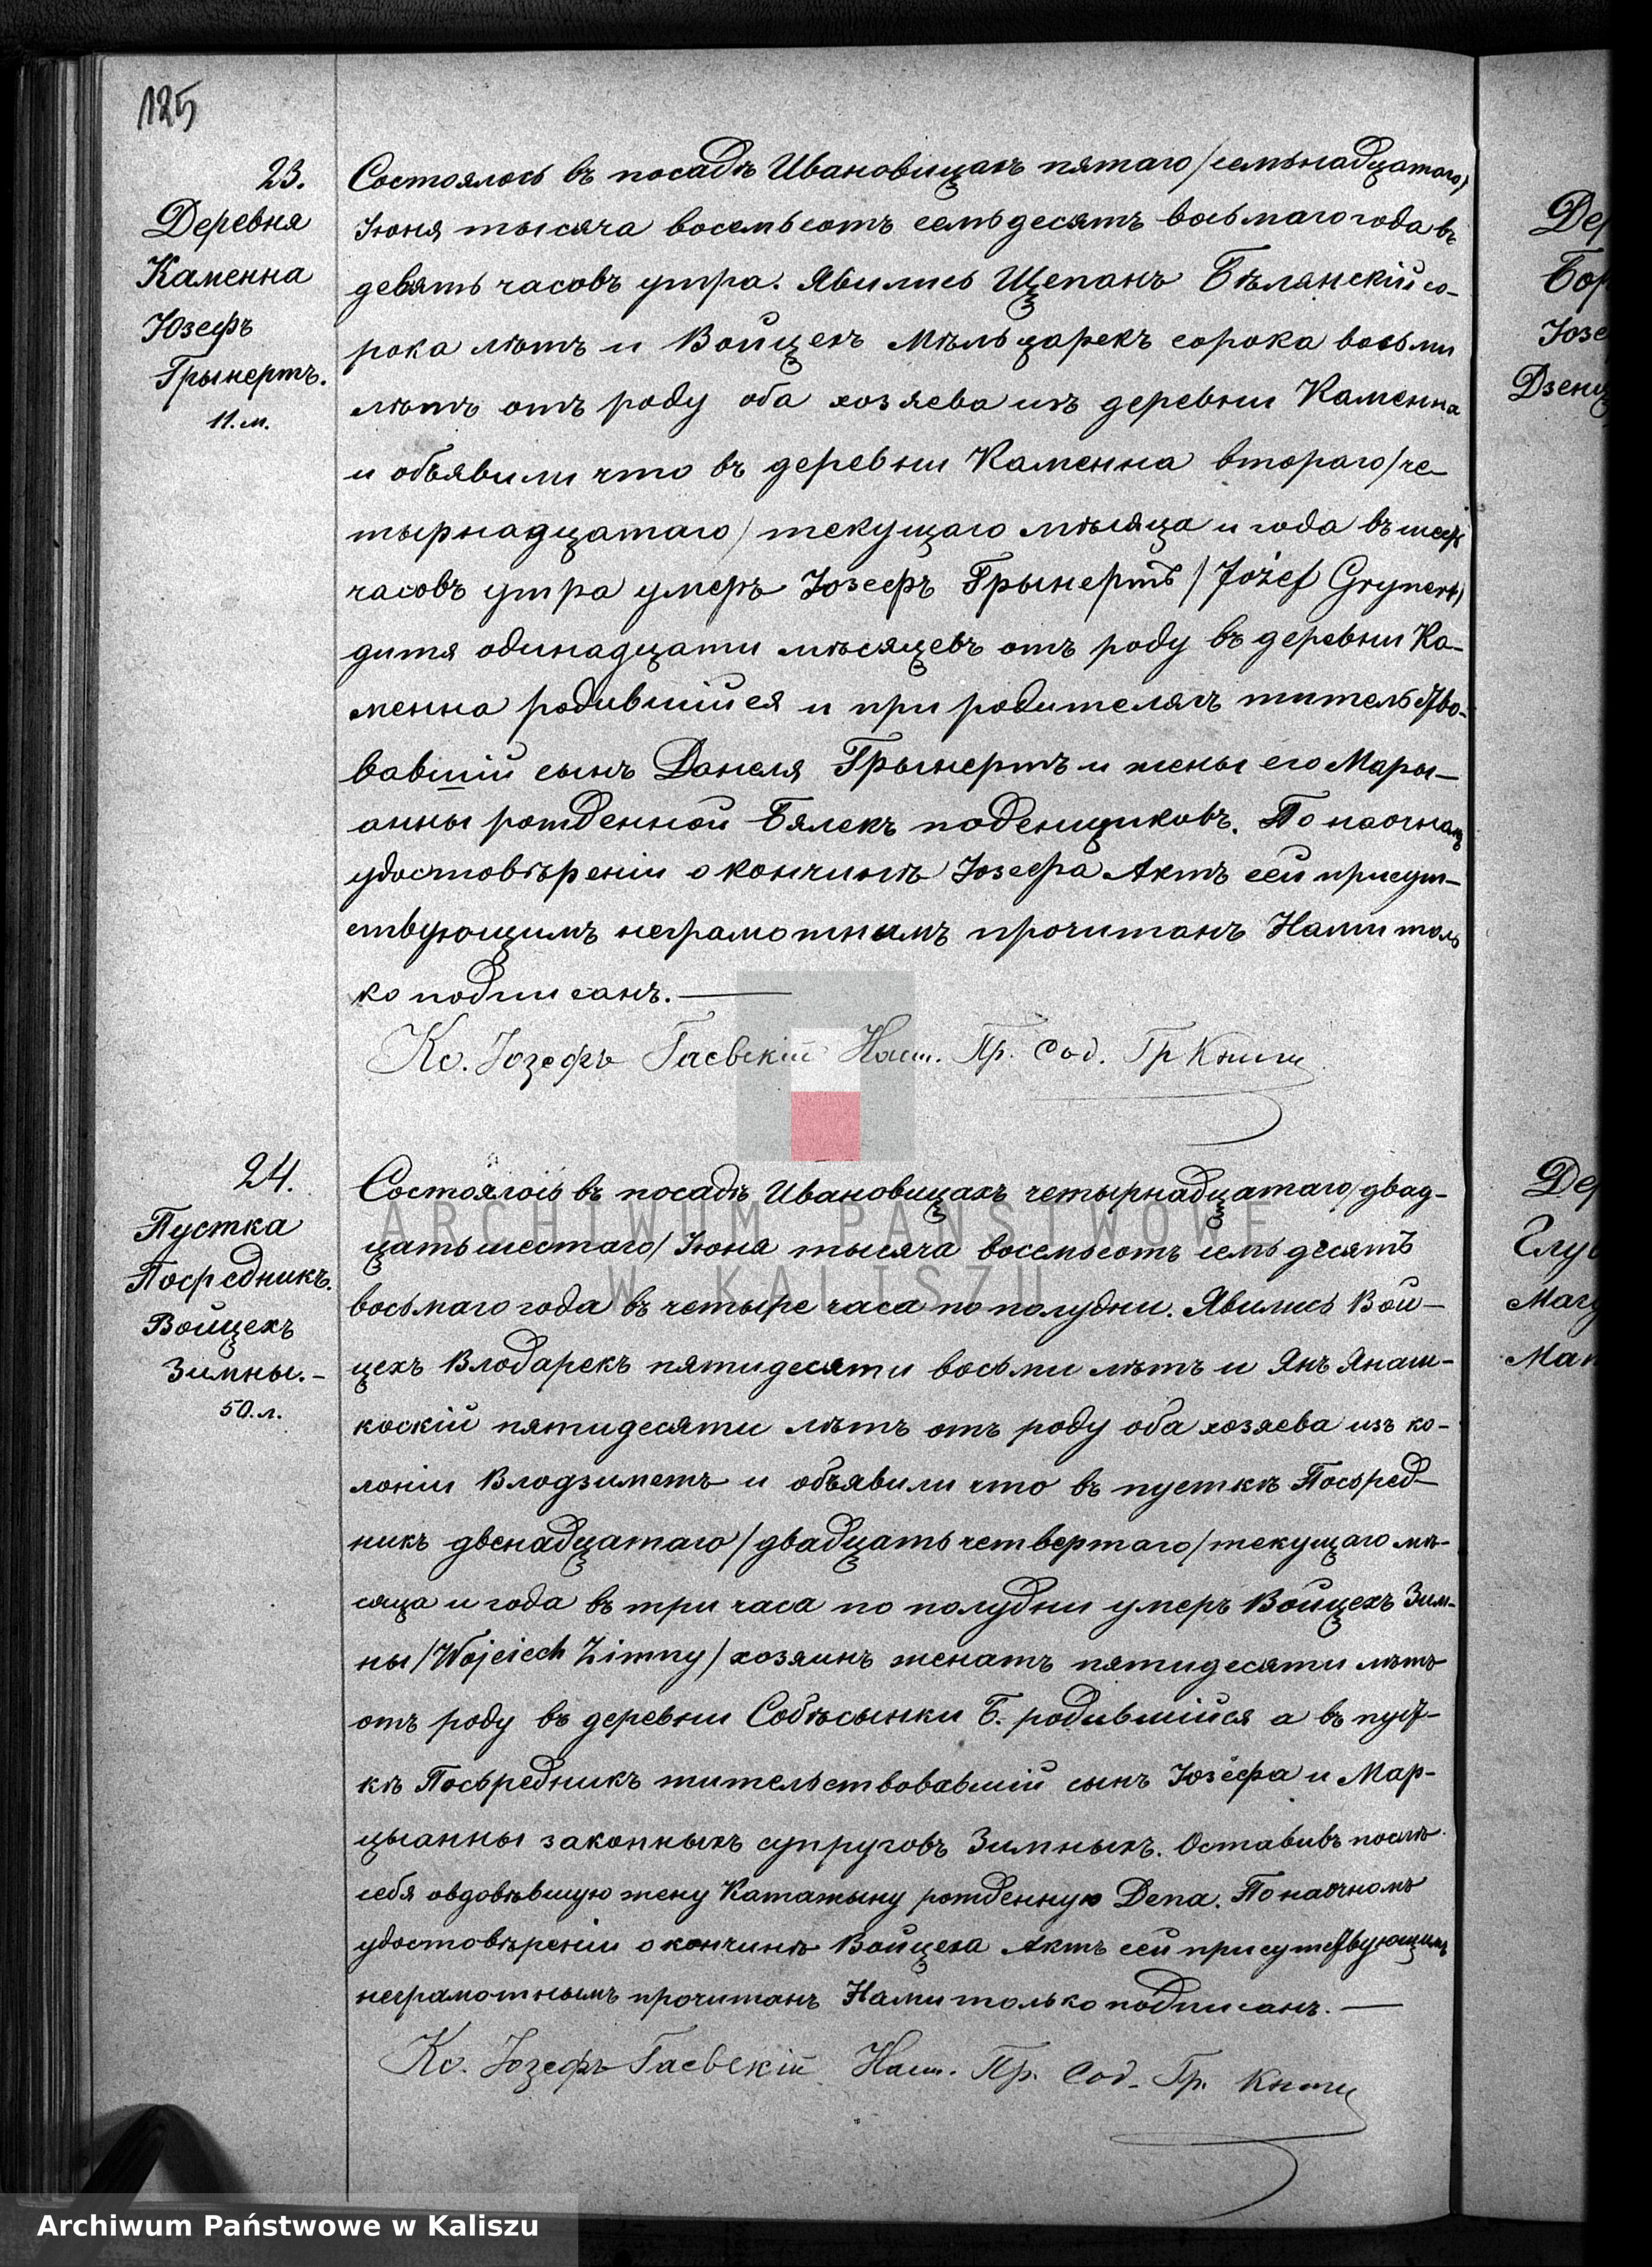 125
23.
Деревня
Каменна
Юзефъ
Грынертъ.
11.м.
Состоялось въ посадѣ Ивановицахъ пятаго /семьнадцатаго/
Іюня тысяча восемьсотъ семьдесятъ восьмаго года въ
девять часовъ утра. Явились Щепанъ Бѣлянскій со-
рока лѣтъ и Войцехъ Мѣльцарекъ сорока восьми
лѣтъ отъ роду оба хозяева изъ деревни Каменна
и объявили что въ деревни Каменна втораго /че-
тырнадцатаго/ текущаго мѣсяца и года въ
часовъ утра умеръ Іозефъ Грынертъ /Józef Grynert/
дитя одинадцати мѣсяцевъ отъ роду въ деревни Ка-
менна родившійся и при родителяхъ жительство-
вавшій сынъ Данеля Грынертъ и жены его Мары-
анны рожденной Бялекъ поденщиковъ. По наочномъ
удостовѣреніи о кончинѣ Іозефа Актъ сей присут-
ствующимъ неграмотнымъ прочитанъ Нами толь
ко подписанъ.
Кс. Іозефъ Гаевскій Наст. Пр. Сод. Гр Книги
24.
Пустка
Посредникъ.
Войцехъ
Зимны.-
50.л.
Состоялось въ посадѣ Ивановицахъ четырнадцатаго /двад-
цать шестаго/ Іюня тысяча восемьсотъ семьдесятъ
восьмаго года въ четыре часа по полудни. Явились Вой-
цехъ Влодарекъ пятидесяти восьми лѣтъ и Янъ Янаш-
коскій пятидесяти лѣтъ отъ роду оба хозяева изъ ко-
лоніи Влодзимежъ и объявили что въ пусткѣ Посьред-
никъ двенадцатаго /двадцать четвертаго/ текущаго мѣ-
сяца и года въ три часа по полудни умеръ Войцехъ Зим-
ны /Wojciech Zimny/ хозяинъ женатъ пятидесяти лѣтъ
отъ роду въ деревни Собѣсынки Б. родившійся а въ пуст-
кѣ Посьредникъ жительствовавшій сынъ Іозефа и Мар-
цыанны законныхъ супруговъ Зимныхъ. Оставивъ послѣ
себя овдовѣвшую жену Катажыну рожденную Депа. По наочномъ
удостовѣреніи о кончинѣ Войцеха Актъ сей присутствующимъ
неграмотнымъ прочитанъ Нами только подписанъ.
Кс. Іозефъ Гаевскій Наст. Пр. Сод. Гр. Книги
Дер
Бор
Іозе
Дзенц
Дер
Глу
Магд
Ма
ARCHIWUM PAŃSTWOWE
W KALISZU
Archiwum Państwowe w Kaliszu